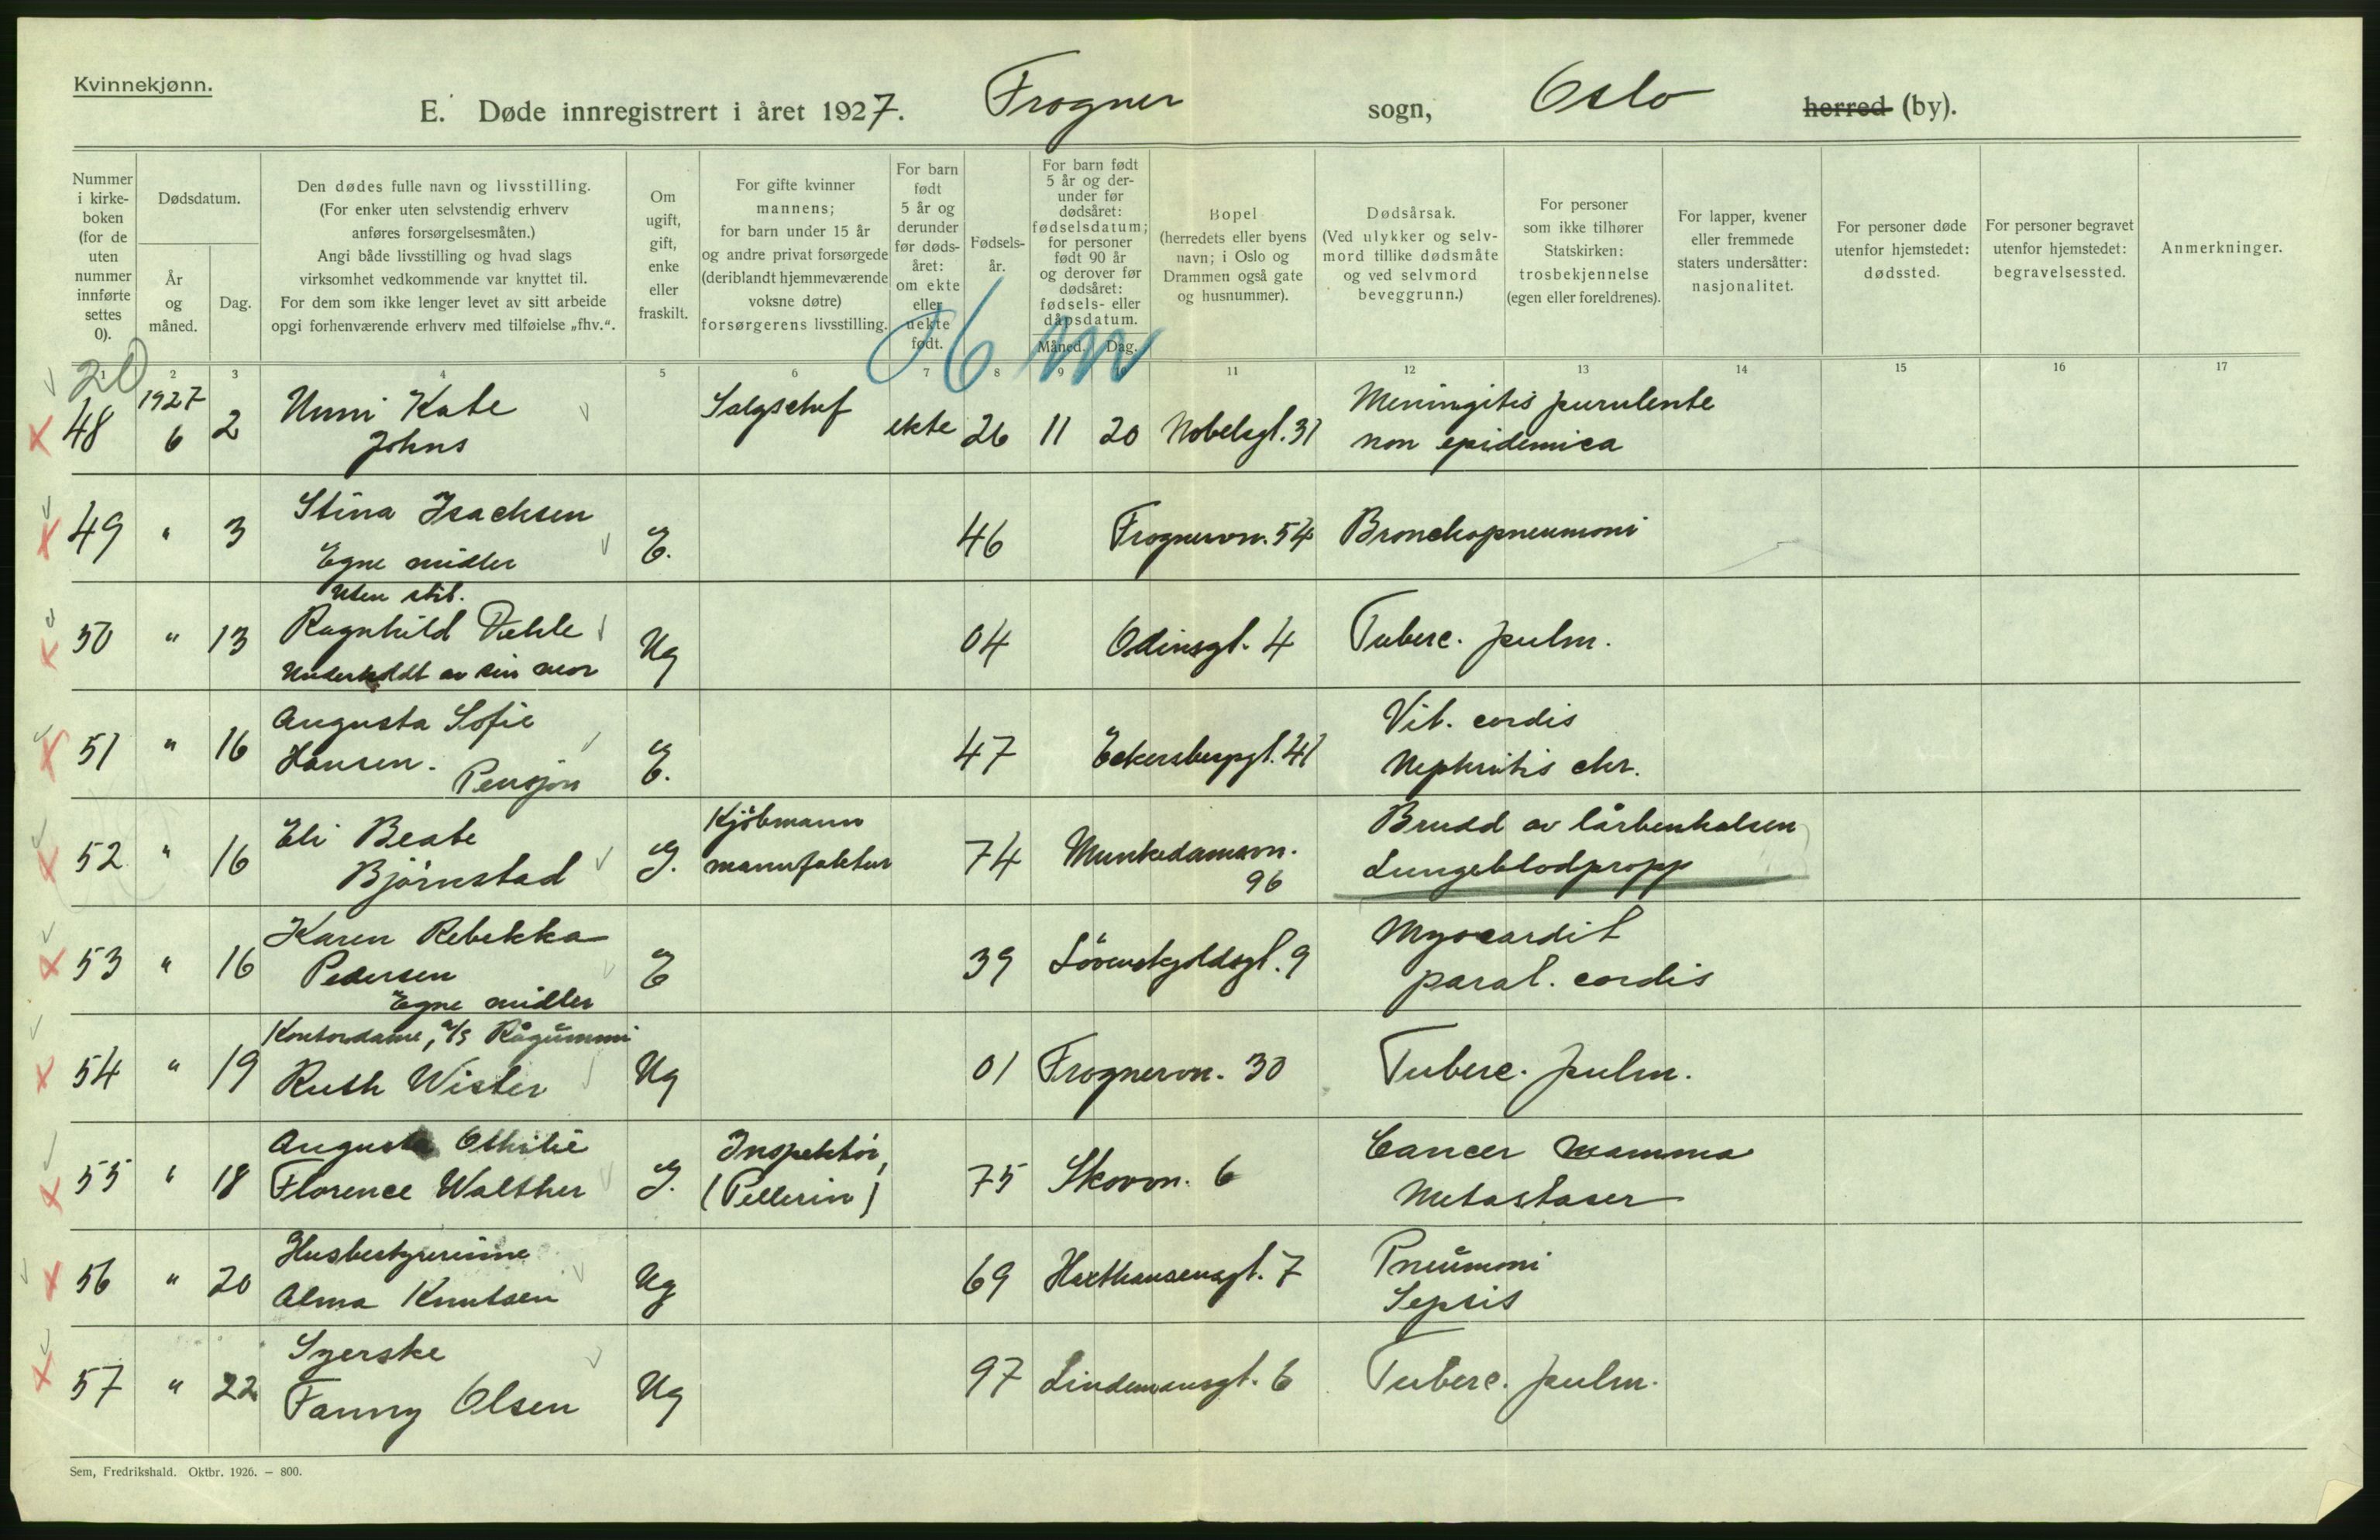 Kvinnekjønn.
E. Døde innregistrert i året 1927. Frogner sogn, Oslo herred (by).
Nummer i kirke-boken (for de uten nummer innførte settes 0).
Dødsdatum.
År og måned.
Dag.
Den dødes fulle navn og livsstilling.
(For enker uten selvstendig erhverv
anføres forsørgelsesmåten.)
Angi både livsstilling og hvad slags
virksomhet vedkommende var knyttet til.
For dem som ikke lenger levet av sitt arbeide
opgi forhenværende erhverv med tilføielse „fhv.“.
Om
ugift,
gift,
enke
eller
fraskilt.
For gifte kvinner
mannens;
for barn under 15 år
og andre privat forsørgede
(deriblandt hjemmeværende
voksne døtre)
forsørgerens livsstilling.
For barn
født
5 år og
derunder
før døds-
året:
om ekte
eller
uekte
født.
Fødsels-
år.
For barn født
5 år og der-
under før
dødsåret:
fødselsdatum;
for personer
født 90 år
og derover før
dødsåret:
fødsels- eller
dåpsdatum.
Måned. Dag.
Bopel
(herredets eller byens
navn; i Oslo og
Drammen også gate
og husnummer).
Dødsårsak.
(Ved ulykker og selv-
mord tillike dødsmåte
og ved selvmord
beveggrunn.)
For personer
som ikke tilhører
Statskirken:
trosbekjennelse
(egen eller foreldrenes).
For lapper, kvener
eller fremmede
staters undersåtter:
nasjonalitet.
For personer døde
utenfor hjemstedet:
dødssted.
For personer begravet
utenfor hjemstedet:
begravelsessted.
Anmerkninger.
1 2 3 4 5 6 7 8 9 10 11 12 13 14 15 16 17
20
1927 Unni Kate Salgschef Meningitis purulente
48 6 2 Johns ekte 26 11 20 Nobelsgt. 31 non epidemica
Stina Isachsen
49 " 3 E. 46 Frognervn. 54 Bronchopneumoni
Egne midler
Uten stil.
50 " 13 Ragnhild Ug 04 Odinsgt. 4 Tuberc. pulm.
Underholdt av sin mor
Augusta Sofie Vit. cordis
51 " 16 Hansen. E. 47 Eckersbergt. 41 Nephritis chr.
Pensjon
Kjöbmann Brudd av lårbenhalsen
52 " 16 Eli Beate G. manufaktur 74 Munkedamsvn. Lungeblodpropp
Björnstad 96
Karen Rebekka Myocardit
53 " 16 Pedersen E 39 Lövenskjoldsgt. 9 paral. cordis
Egne midler
Kontordame, a/s Rågummi
54 " 19 Ruth Wister Ug 01 Frognervn. 30 Tuberc. pulm.
Augusta Othilie Inspektör, Cancer mamma
55 " 18 Florence Walther G. (Pellerin) 75 Skovvn. 6 Metastaser
Husbestyrerinne Pneumoni
56 " 20 Alma Knutsen Ug 69 Haxthausensgt. 7 Sepsis
Syerske
57 " 22 Fanny Olsen Ug 97 Lindemansgt. 6 Tuberc. pulm.
Sem, Fredrikshald. Oktbr. 1926. – 800.